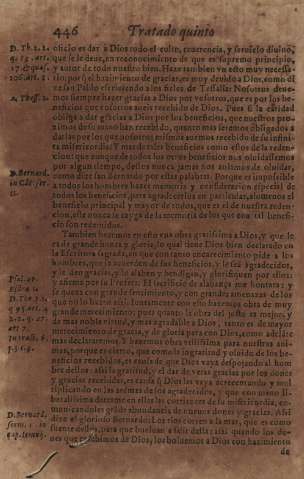 446 Tratado quinto
D. Th. 2. 2. oficio es dar à Dios todo el culto, reuerencia, y seruicio diuino,
que se le deue, en reconocimiento de que es supremo principio,
y autor de todo nuestro bien. Haze tambien un acto muy necessa-
rio por si el hazimiento de gracias, es muy deuido à Dios, como di-
ze san Pablo escriuiendo a los fieles de Tessalia: Nosotros deue-
mos siempre hazer gracias a Dios por vosotros, que es por los be-
neficios que vosotros aueis recebido de Dios. Pues si la caridad
obliga a dar gracias a Dios por los beneficios, que nuestros pro-
ximos de su mano han recebido, quanto mas seremos obligados a
darlas por los que nosotros mismos auemos recebido de su infini-
ta misericordia: Y mas de tales beneficios como estos de la reden-
cion: que aunque de todos los otros beneficios nos oluidassemos
por algun tiempo, destos nunca jamas nos auiamos de oluidar,
D. Bernard. como dize san Bernardo por estas palabras. Porque es impossible
a todos los hombres hazer memoria y consideracion especial de
todos los beneficios, para agradecerlos en particular, alomenos el
beneficio principal y mayor de todos, que es el de nuestra reden-
cion, este nunca se cayga de la memoria de los que con tal benefi-
cio son redemidos.
Tambien haremos en esto una obra gratissima a Dios, y que le
es de grande honra y gloria, lo qual tiene Dios bien declarado en
la Escritura sagrada, en que con tanto encarecimiento pide a los
hombres, que se acuerden de sus beneficios, y le sean agradecidos,
y le den gracias, y lo alaben y bendigan, y glorifiquen por ellos:
y afirma por su Profeta: El sacrificio de alabança me honrara: y
se quexa con grande sentimiento, y con grandes amenazas de los
que no lo hazen assi. Iuntamente con esto haremos obra de muy
grande merecimiento; pues quanto la obra del justo es mejor, y
de mas noble virtud, y mas agradable a Dios, tanto es de mayor
merecimiento de gracia, y de gloria para con Dios, como adelan-
te declararemos. Y haremos obra utilissima para nuestras ani-
mas, porque es cierto, que como la ingratitud y oluido de los be-
neficios recebidos, es causa de que Dios vaya despojando al hom-
bre dellos: assi la gratitud, y el dar de veras gracias por los dones
y gracias recebidas, es causa que Dios las vaya acrecentando y mul-
tiplicando en las animas de los agradecidos, y que con mano li-
beralissima derrame en ellas las corrientes de su misericordia, co-
municandoles grande abundancia de nueuos dones y gracias. Assi
D. Bernard. dize el glorioso Bernardo: Los rios corren a la mar, que es como
fuente dellos, para que bueluan a salir della: assi quando los do-
nes que recebimos de Dios, los boluemos a Dios con hazimiento
de